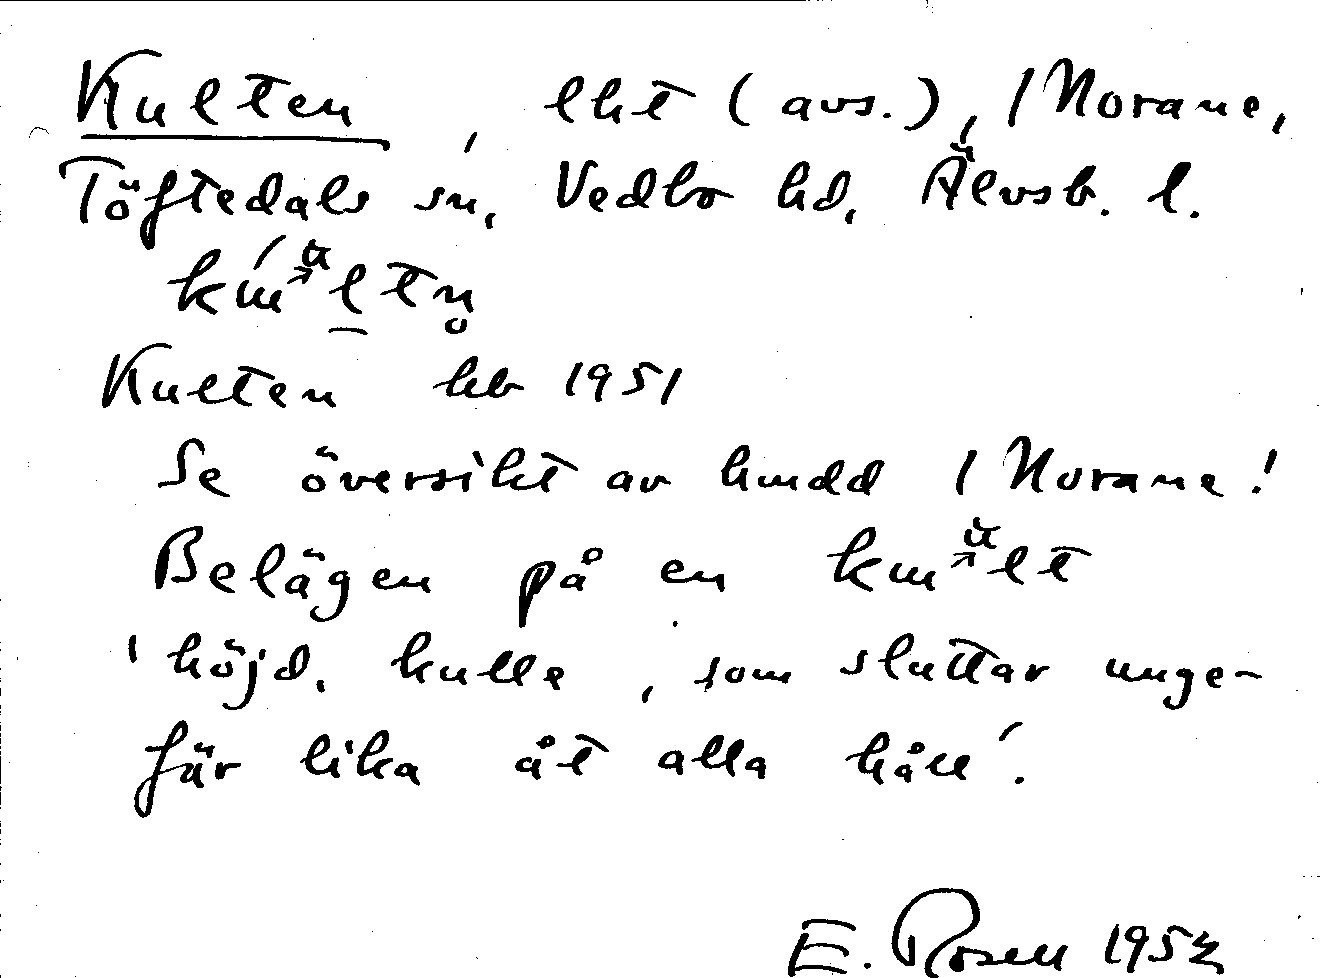 Kulten, lht (avs.), 1 Norane,
Töftedals sn, Vedbo hd, Älvsb. l.
Kulten hb 1951
Se översikt av huvudd 1 Norane!
Belägen på en
'höjd, kulle, som sluttar unge-
fär lika åt alla håll'.
E. Rosell 1952